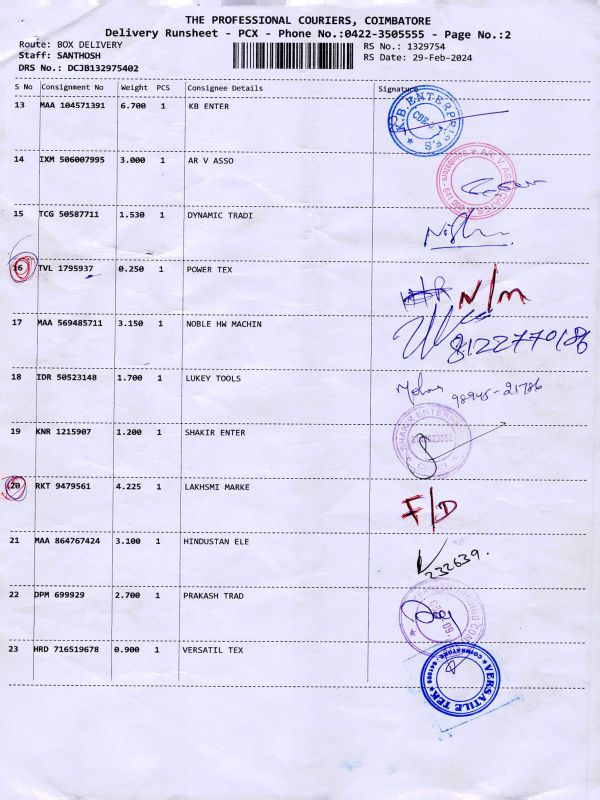 THE PROFESSIONAL COURIERS, COIMBATORE
Delivery Runsheet - PCX - Phone No.:0422-3505555 - Page No.:2
Route: BOX DELIVERY RS No.: 1329754
Staff: SANTHOSH RS Date: 29-Feb-2024
DRS No.: DCJB132975402
S No Consignment No Weight PCS Consignee Details Signature
13 MAA 104571391 6.700 1 KB ENTER
K.B. ENTERPRISES
CBE-2
14 IXM 506007995 3.000 1 AR V ASSO
AR. V. ASSOCIATES
15 TCG 50587711 1.530 1 DYNAMIC TRADI
16 TVL 1795937 0.250 1 POWER TEX
N/m
17 MAA 569485711 3.150 1 NOBLE HW MACHIN
8122770186
18 IDR 50523148 1.700 1 LUKEY TOOLS
98945-21786
19 KNR 1215907 1.200 1 SHAKIR ENTER
SHAKIR ENTER
20 RKT 9479561 4.225 1 LAKHSMI MARKE
F/D
21 MAA 864767424 3.100 1 HINDUSTAN ELE
232639.
22 DPM 699929 2.700 1 PRAKASH TRAD
23 HRD 716519678 0.900 1 VERSATIL TEX
VERSATILE TEK
COIMBATORE